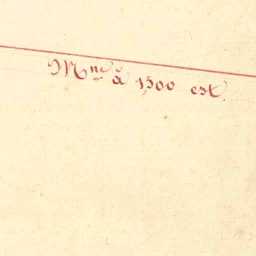 Mne à 1,500 est.